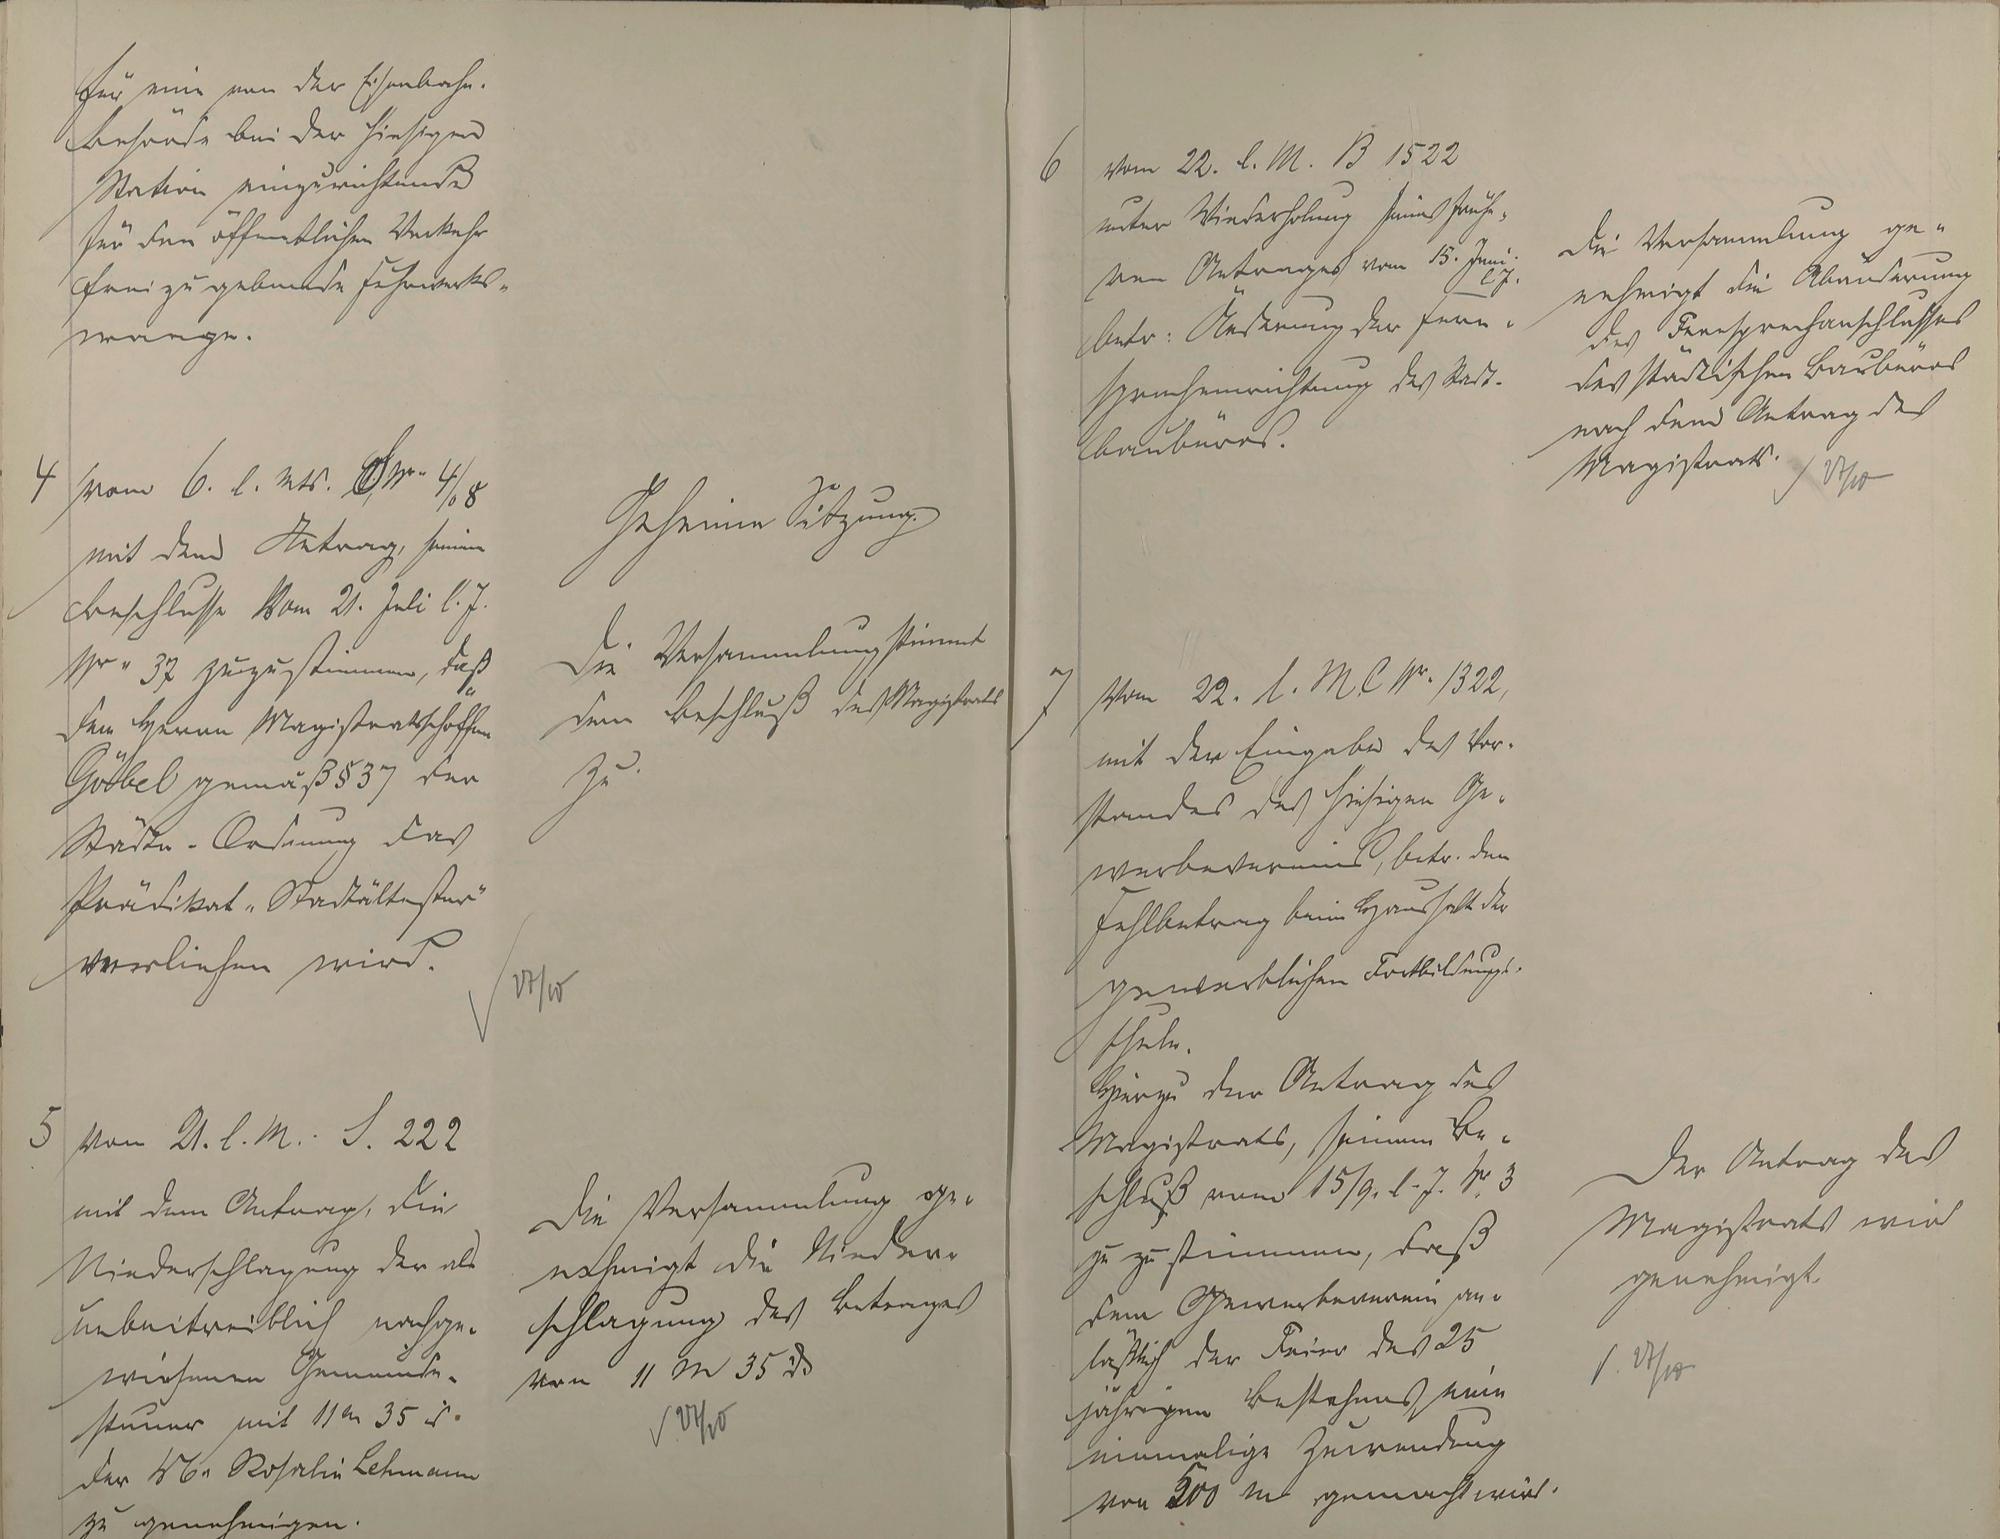 für eine von der Eisenbahn-
behörde bei der hiesigen
Station einzurichtende
für den öffentlichen Verkehr
frei zu gebende Fuhrwerks-
waage.
4 vom 6. l. Mts. Nr. 4/08
mit dem Antrag, seinem
Beschlusse vom 21. Juli l. J.
Nr. 37 zuzustimmen, daß
dem Herrn Magistratsschöffen
Göbel gemäß § 37 der
Städte-Ordnung das
Prädikat "Stadtältester"
verliehen wird.
Geheime Sitzung.
Die Versammlung stimmt
dem Beschluß des Magistrats
zu.
27/10
5 vom 21. l. M. S. 222
mit dem Antrag, die
Niederschlagung der als
unbeitreiblich nachge-
wiesenen Gemeinde-
steuer mit 11 M 35 d
der Rosalie Lehmann
zu genehmigen.
Die Versammlung ge-
nehmigt die Nieder-
schlagung des Betrages
von 11 M 35 d
27/10
6 vom 22. l. M. B 1522
unter Wiederholung seines frühe-
ren Antrages vom 15. Juni
l. J.
betr: Änderung der Fern-
sprecheinrichtung des Stadt-
baubüros.
Die Versammlung ge-
nehmigt die Abänderung
des Fernsprechanschlusses
des städtischen Baubüros
nach dem Antrag des
Magistrats.
27/10
7 Vom 22. l. M. C Nr. 1322,
mit der Eingabe des Vor-
standes des hiesigen Ge-
werbevereins, betr. den
Fehlbetrag beim Haushalt der
gewerblichen Fortbildungs-
schule.
Hierzu der Antrag des
Magistrats, seinem Be-
schluß vom 15/9. l. J. Nr. 3
zu zustimmen, daß
dem Gewerbeverein an-
läßlich der Feier des 25
jährigen Bestehens eine
einmalige Zuwendung
von 500 M gemacht wird.
Der Antrag des
Magistrats wird
genehmigt
27/10